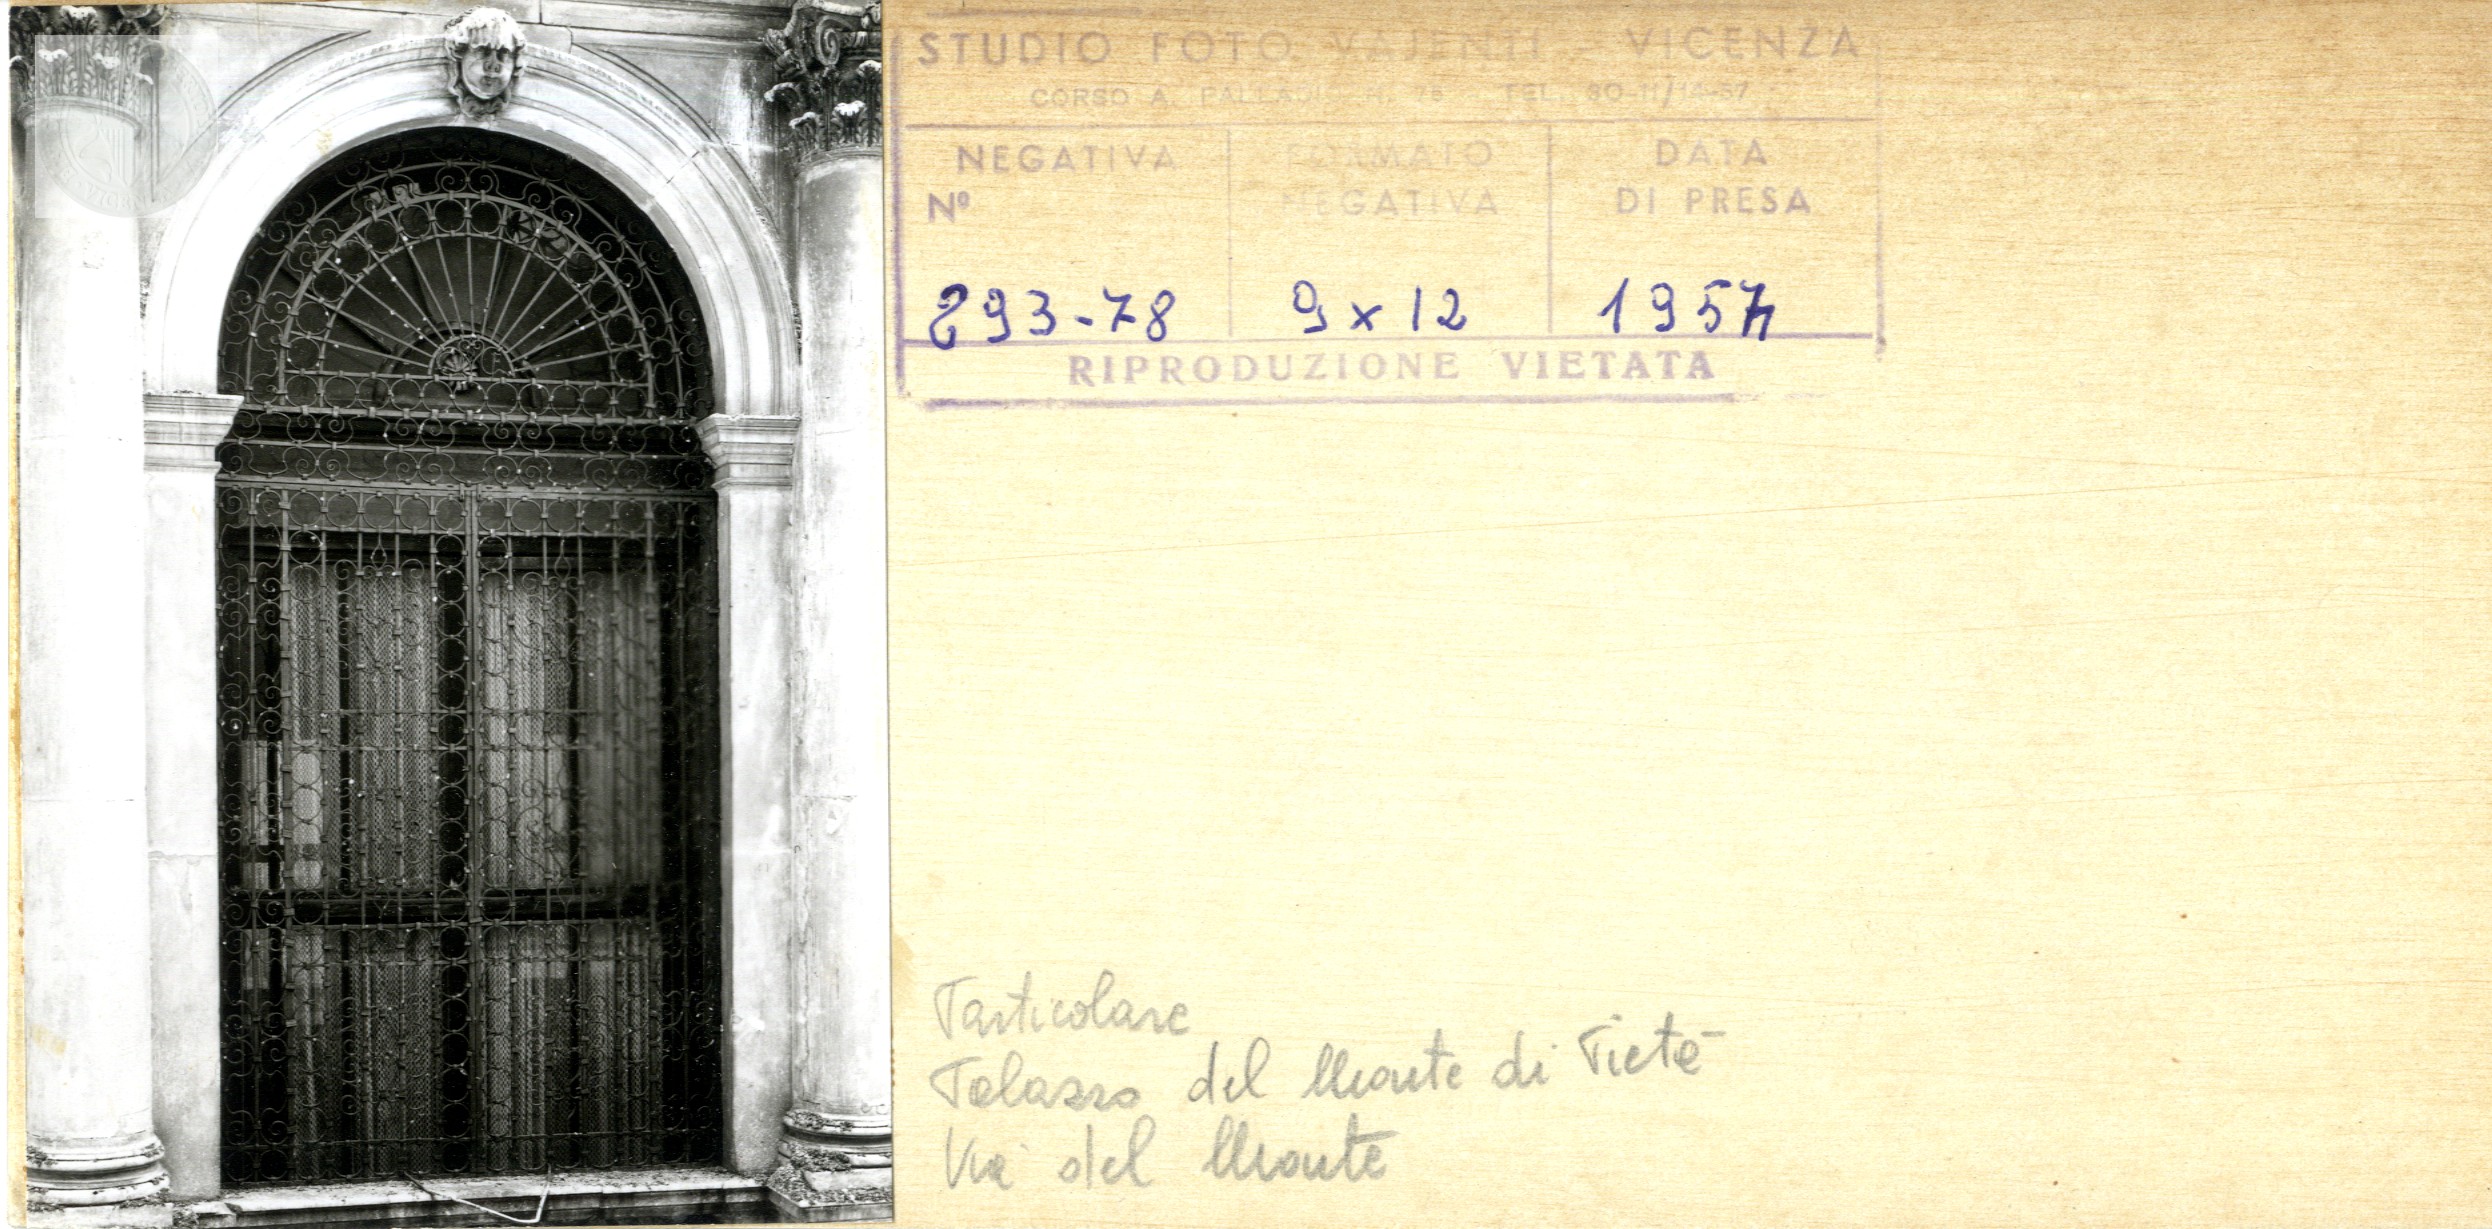 STUDIO FOTO VAJENTI - VICENZA
CORSO A. PALLADIO N. TEL.
NEGATIVA
Nº
FORMATO
NEGATIVA
DATA
DI PRESA
293-78
9 x 12
1957
RIPRODUZIONE VIETATA
Particolare
Palazzo del Monte di Pietà
Via del Monte